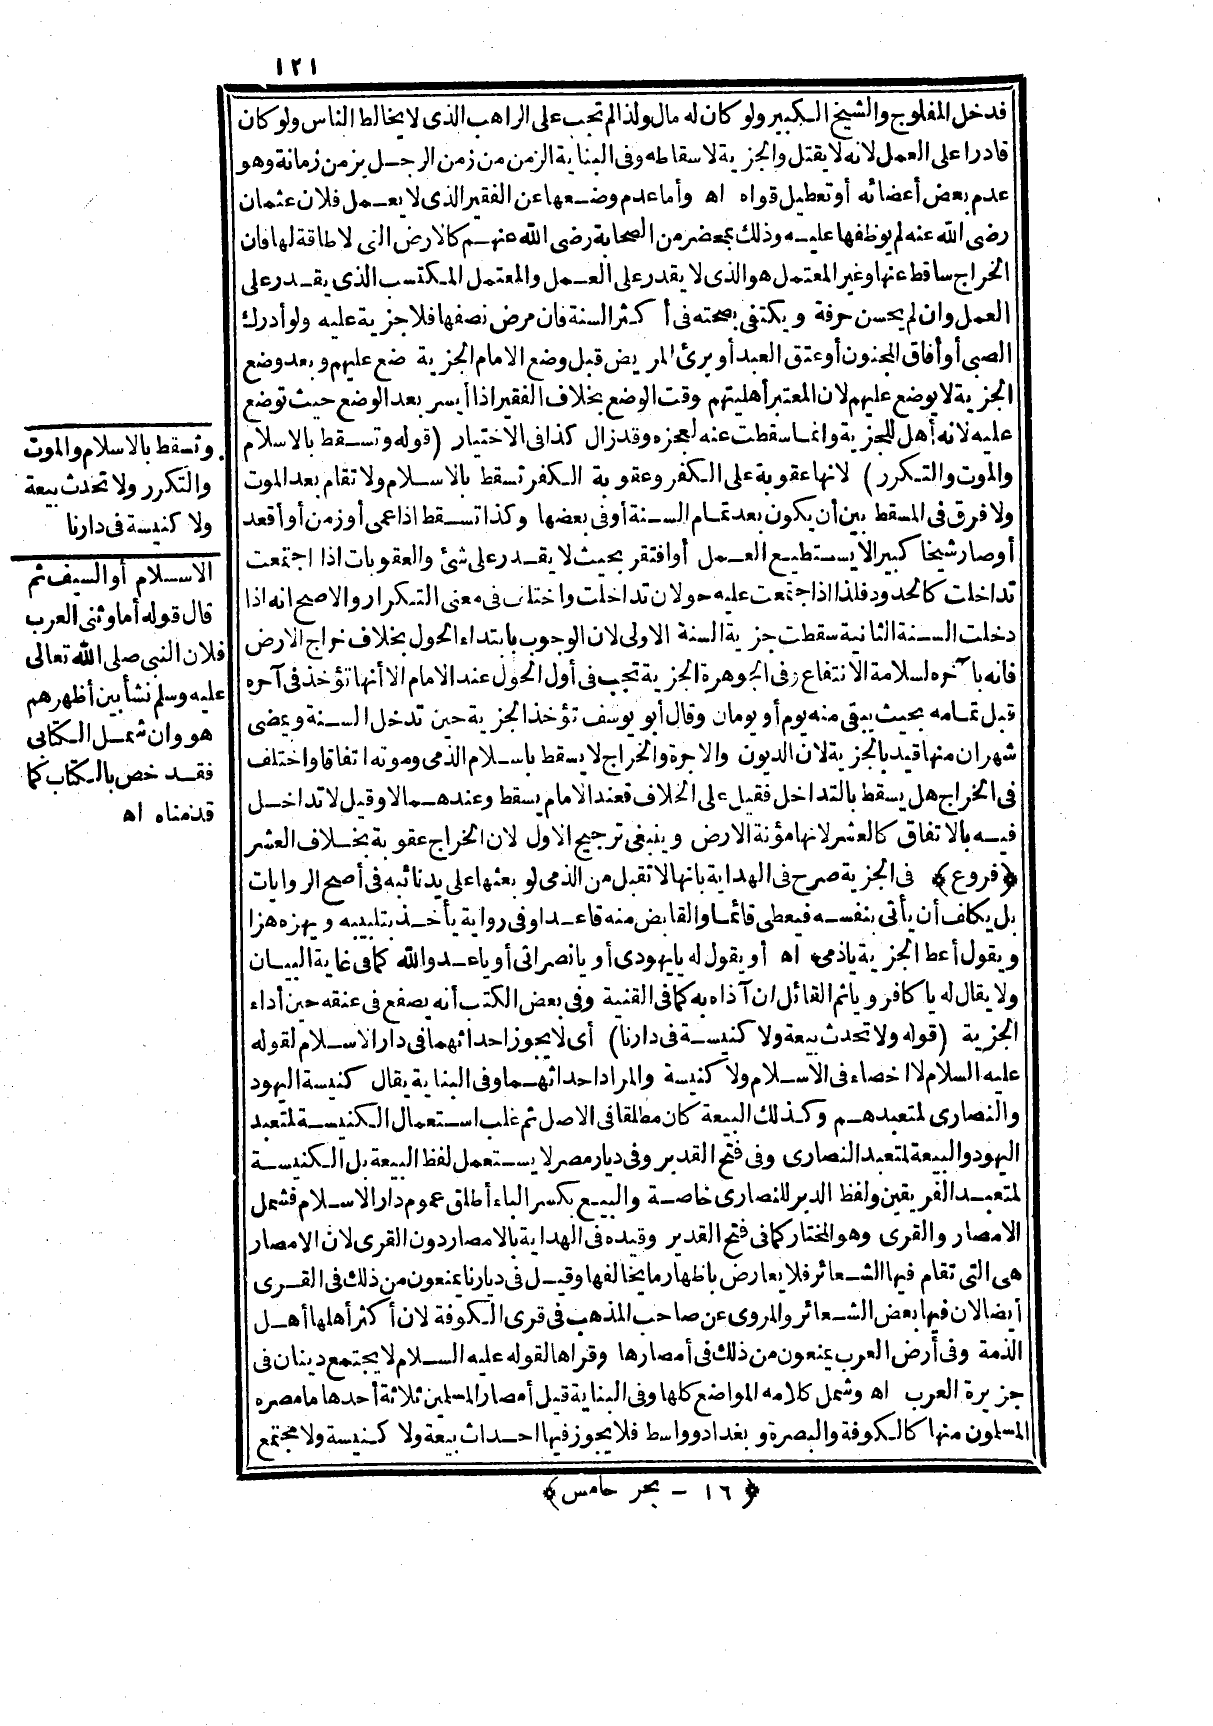 ١٢١
فدخل المفلوج والشيخ الكبير ولو كان له مال ولذا لم تجب على الراهب الذى لا يخالط الناس ولو كان
قادرا على العمل لانه لا يقتل والجزية لاسقاطه وفى البناية الزمن من زمن الرجل يزمن زمانة وهو
عدم بعض أعضائه أو تعطيل قواه اه وأما عدم وضعها عن الفقير الذى لا يعمل فلان عثمان
رضى الله عنه لم يوظفها عليه وذلك بمحضر من الصحابة رضى الله عنهم كالارض التى لا طاقة لها فان
الخراج ساقط عنها وغير المعتمل هو الذى لا يقدر على العمل والمعتمل المكتسب الذى يقدر على
العمل وان لم يحسن حرفة ويكتفى بصحته فى أكثر السنة فان مرض نصفها فلا جزية عليه ولو أدرك
الصبى أو أفاق المجنون أو عتق العبد أو برئ المريض قبل وضع الامام الجزية ضع عليهم وبعد وضع
الجزية لا يوضع عليهم لان المعتبر أهليتهم وقت الوضع بخلاف الفقير اذا أيسر بعد الوضع حيث توضع
عليه لانه أهل للجزية وانما سقطت عنه لعجزه وقد زال كذا فى الاختيار (قوله وتسقط بالاسلام
والموت والتكرر) لانها عقوبة على الكفر وعقوبة الكفر تسقط بالاسلام ولا تقام بعد الموت
ولا فرق فى المسقط بين أن يكون بعد تمام السنة أو فى بعضها وكذا تسقط اذا عمى أو زمن أو أقعد
أو صار شيخا كبيرا لا يستطيع العمل أو افتقر بحيث لا يقدر على شئ والعقوبات اذا اجتمعت
تداخلت كالحدود فلذا اذا اجتمعت عليه حولان تداخلت واختلف فى معنى التكرار والاصح انه اذا
دخلت السنة الثانية سقطت جزية السنة الاولى لان الوجوب بابتداء الحول بخلاف خراج الارض
فانه بآخره لسلامة الانتفاع وفى الجوهرة الجزية تجب فى أول الحول عند الامام الا أنها تؤخذ فى آخره
قبل تمامه بحيث يبقى منه يوم أو يومان وقال أبو يوسف تؤخذ الجزية حين تدخل السنة ويمضى
شهران منها قيد بالجزية لان الديون والاجرة والخراج لا يسقط باسلام الذمى وموته اتفاقا واختلف
فى الخراج هل يسقط بالتداخل فقيل على الخلاف فعند الامام يسقط وعندهما لا وقيل لا تداخل
فيه بالاتفاق كالعشر لانها مؤنة الارض وينبغى ترجيح الاول لان الخراج عقوبة بخلاف العشر
﴿فروع﴾ فى الجزية صرح فى الهداية بانها لا تقبل من الذمى لو بعثها على يد نائبه فى أصح الروايات
بل يكلف أن يأتى بنفسه فيعطى قائما والقابض منه قاعدا وفى رواية يأخذ بتلبيبه ويهزه هزا
ويقول أعط الجزية ياذمى اه أو يقول له يا يهودى أو يا نصرانى أو يا عدو الله كما فى غاية البيان
ولا يقال له يا كافر ويأثم القائل ان آذاه به كما فى القنية وفى بعض الكتب أنه يصفع فى عنقه حين أداء
الجزية (قوله ولا تحدث بيعة ولا كنيسة فى دارنا) أى لا يجوز احداثهما فى دار الاسلام لقوله
عليه السلام لا اخصاء فى الاسلام ولا كنيسة والمراد احداثهما وفى البناية يقال كنيسة اليهود
والنصارى لمتعبدهم وكذلك البيعة كان مطلقا فى الاصل ثم غلب استعمال الكنيسة لمتعبد
اليهود والبيعة لمتعبد النصارى وفى فتح القدير وفى ديار مصر لا يستعمل لفظ البيعة بل الكنيسة
لمتعبد الفريقين ولفظ الدير للنصارى خاصة والبيع بكسر الباء أطلق عموم دار الاسلام فشمل
الامصار والقرى وهو المختار كما فى فتح القدير وقيده فى الهداية بالامصار دون القرى لان الامصار
هى التى تقام فيها الشعائر فلا يعارض باظهار ما يخالفها وقيل فى ديارنا يمنعون من ذلك فى القرى
أيضا لان فيها بعض الشعائر والمروى عن صاحب المذهب فى قرى الكوفة لان أكثر أهلها أهل
الذمة وفى أرض العرب يمنعون من ذلك فى أمصارها وقراها لقوله عليه السلام لا يجتمع دينان فى
جزيرة العرب اه وشمل كلامه المواضع كلها وفى البناية قيل أمصار المسلمين ثلاثة أحدها ما مصره
المسلمون منها كالكوفة والبصرة وبغداد وواسط فلا يجوز فيها احداث بيعة ولا كنيسة ولا مجتمع
وتسقط بالاسلام والموت
والتكرر ولا تحدث بيعة
ولا كنيسة فى دارنا
الاسلام أو السيف ثم
قال قوله أما وثنى العرب
فلان النبى صلى الله تعالى
عليه وسلم نشأ بين أظهرهم
هو وان شمل الكتابى
فقد خص بالكتاب كما
قدمناه اه
﴿١٦ - بحر خامس﴾